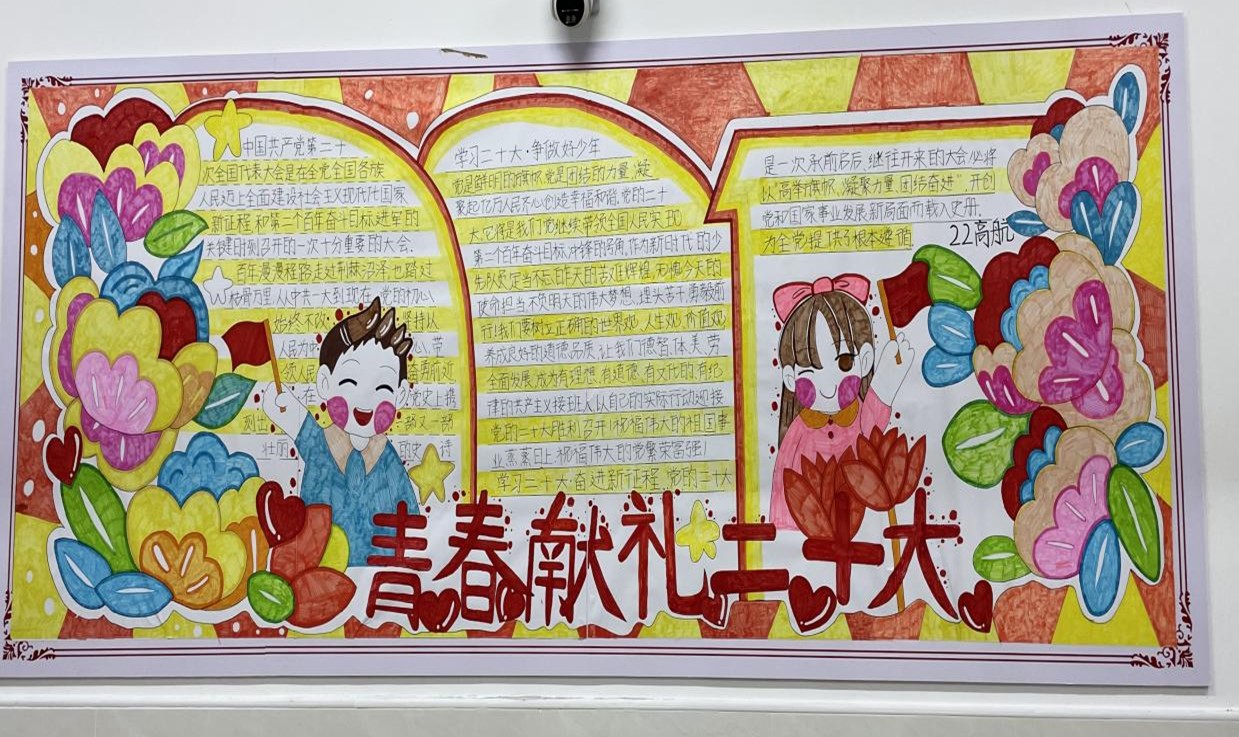 中国共产党第二十
次全国代表大会是在全党全国各族
人民迈上全面建设社会主义现代化国家
新征程和第二个百年奋斗目标进军的
关键时刻召开的一次十分重要的大会.
百年漫漫程路走过荆棘沼泽也踏过
枯骨万里,从中共一大到现在,党的初心
始终不改 坚持从
人民为 心,带
领人民 奋勇前近
在 党史上携
刻出 一部又一部
壮丽 的史 诗
学习二十大·争做好少年
党是鲜明的旗帜,党是团结的力量,凝
聚起亿万人民齐心创造幸福和谐,党的二十
大它将是我们党继续带领全国人民实现
第二个百年奋斗目标冲锋的号角,作为新时代的少
先队员定当不忘昨天的苦难辉煌,无愧今天的
使命担当不负明天的伟大梦想,埋头苦干,勇毅前
行!我们要树立正确的世界观,人生观,价值观,
养成良好的道德品质,让我们德智,体,美,劳
全面发展,成为有理想,有道德,有文化,有纪
律的共产主义接班人以自己的实际行动迎接
党的二十大胜利召开!祝福伟大的祖国事
业蒸蒸日上,祝福伟大的党繁荣富强!
学习二十大·奋进新征程,党的二十大
是一次承前启后,继往开来的大会,必将
以"高举旗帜,凝聚力量,团结奋进",开创
党和国家事业发展新局面而载入史册.
为全党提供了根本遵循.
22高航
青春献礼二十大